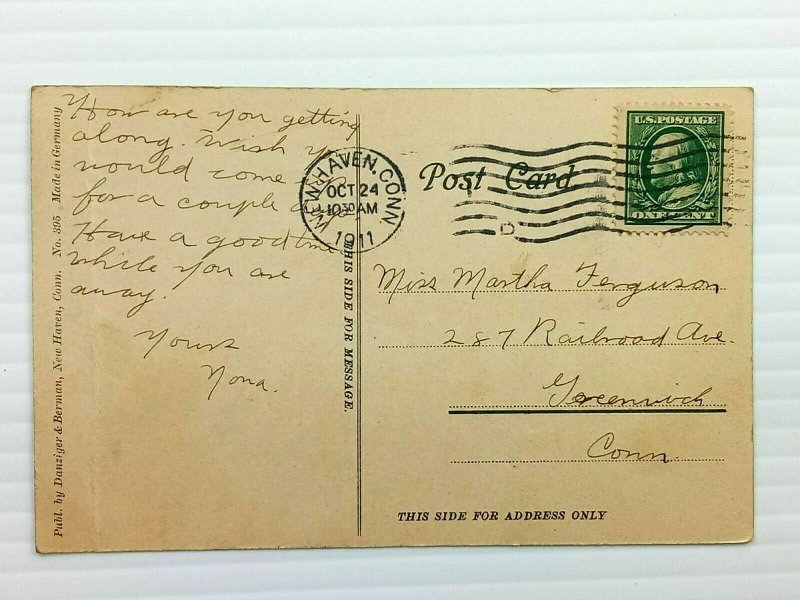 How are you getting
along. Wish
would come
for a couple
Have a good time
while you are
away.
Yours
Nona.
Publ. by Danziger & Berman, New Haven, Conn. No. 395 Made in Germany
THIS SIDE FOR MESSAGE.
NEW HAVEN, CONN.
OCT 24
10 30 AM
1911
Post Card
U.S. POSTAGE
ONE CENT
D
Miss Martha Ferguson
287 Railroad Ave.
Greenwich
Conn.
THIS SIDE FOR ADDRESS ONLY